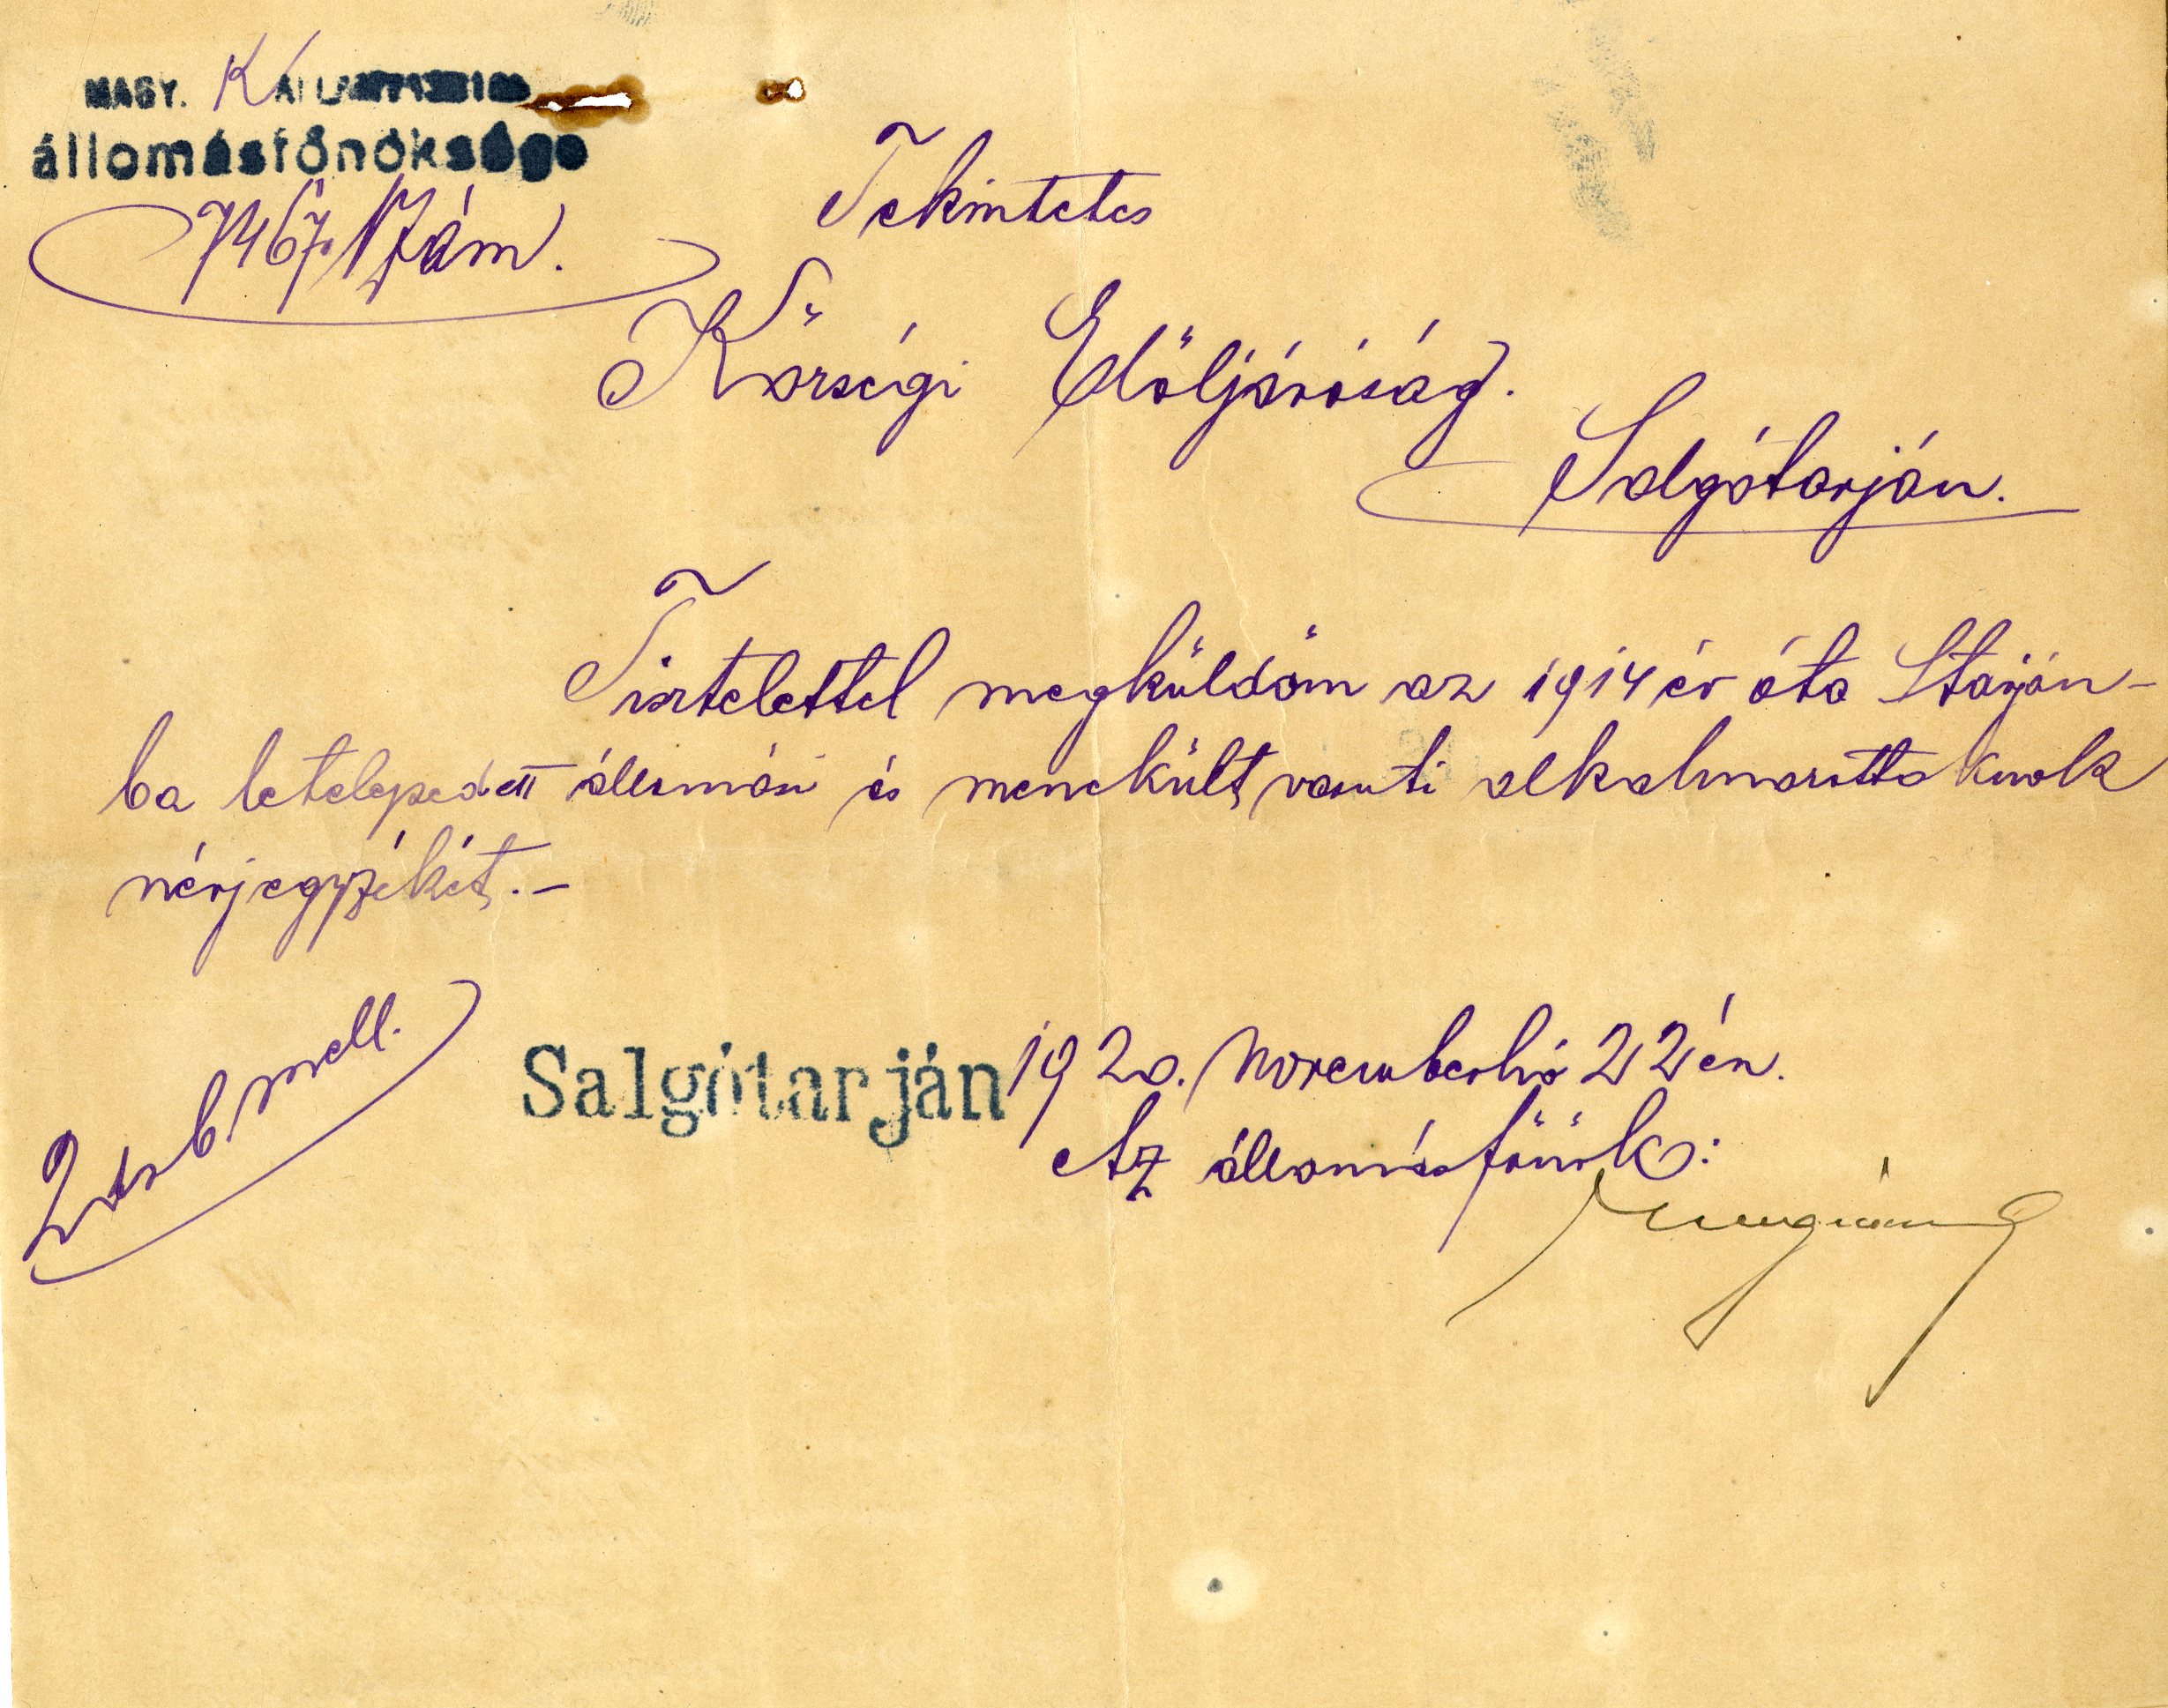 MAGY. K. ÁLLAMVASUTAK
állomásfőnöksége
7467. Szám.
Tekintetes
Községi Elöljáróság.
Salgótarján.
Tisztelettel megküldöm az 1914 év óta Starján-
ba letelepedett állomási és menekült vasuti alkalmazottaknak
névjegyzékét.-
2 drb mell.
Salgótarján 1920. November hó 22 én.
Az állomásfőnök: